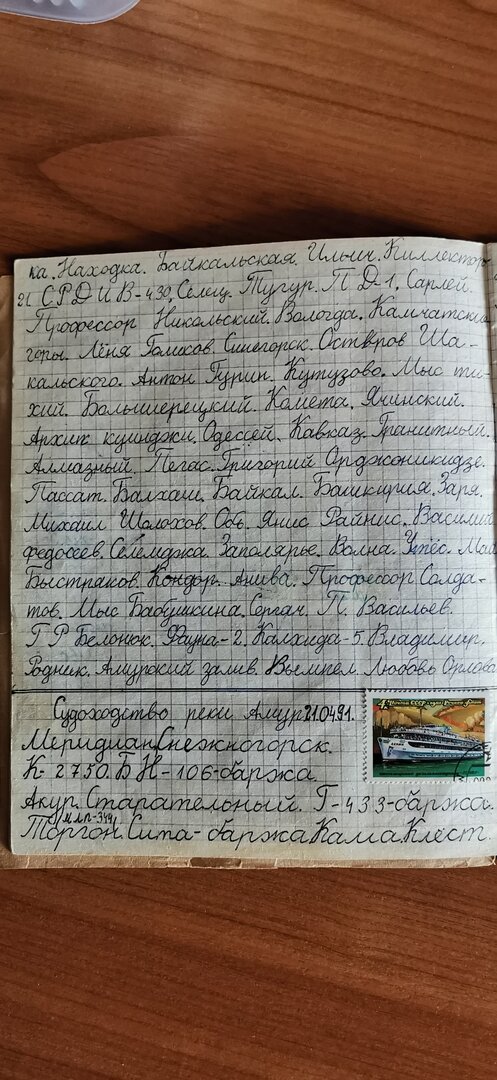 ка. Находка. Байкальская. Ильич. Киллектор
21 СРДИВ-430, Селец. Тугур. П Д-1. Сарлей.
Профессор Никольский. Вологда. Камчатские
горы. Лёня Голиков. Синегорск. Оствров Ша-
кальского. Антон Гурин. Кутузово. Мыс ти-
хий. Большерецкий. Комета. Ячинский.
Архип куинджи. Одессей. Кавказ. Гранитный.
Алмазный. Пегас. Григорий Орджоникидзе.
Пассат. Балхаш. Байкал. Башкирия. Заря.
Михаил Шолохов. Обь. Янис Райнис. Василий
федосеев. Селемджа. Заполярье. Волна. Утёс. Май
Быстряков. Кондор. Анива. Профессор Солда-
тов. Мыс Бабушкина. Сергач. П. Васильев.
Г Р Белонюк. Фауна-2. Калхида-5. Владимир.
Родник. Амурский залив. Вымпел. Любовь Орлова
Судоходство реки Амур 21.04.91.
4к Почта СССР
Меридиан. Снежногорск.
К-2750. БН-106-баржа.
Акур. Старательный. Т-433-баржа.
МЛП-344
Торгон. Сита-баржа Кама. Клёст.